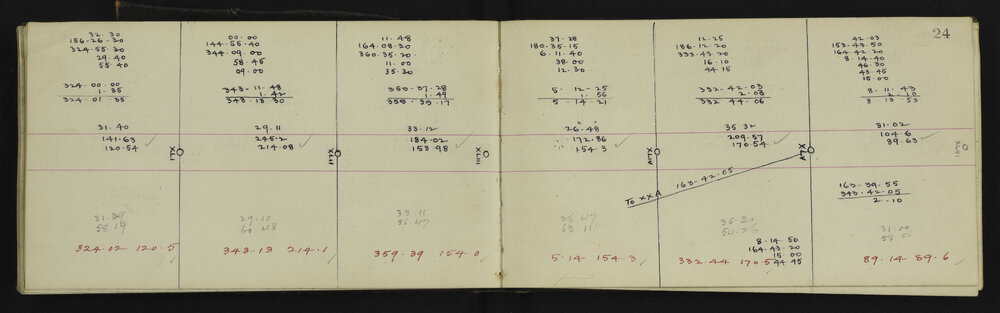 24
32.30
156-26-30
324.55.30
29.40
55.40
324.00.00
1.35
324.01.35
31.40
141.63
120.54
31.29
58 19
324.02 120.5
XLI
00.00
144.55.40
344.09.00
58.45
09.00
343-11.48
1.42
343.13 30
29.11
245.2
214.08
29.10
343.13 214.1
XLII
11.48
164.08.30
360.35.20
11.00
35.30
359.37.28
1.49
359.39.17
33.12
184.02
153.98
33 11
56.47
359.39 154.0
XLIII
37.28
180.35.15
6.11.40
38.00
12.30
5.12-25
1.56
5-14.21
26.48
172.86
154.3
26 47
63 11
5.14 154.3
12.25
186.12.20
333.43.20
16.10
44.15
332-42.03
2.03
332 44.06
35 32
209.57
170.54
To XXA
163-42.05
332.44 170.5
8.14.50
164.43.20
15 00
44 45
42.03
153.43.50
164.42 20
8.14.40
46.30
43.45
15.00
8-11.43
2-10
8 13.53
31.02
104.6
89.63
XLVI
163-39.55
343.42.05
2.10
31.00
89.14 89.6